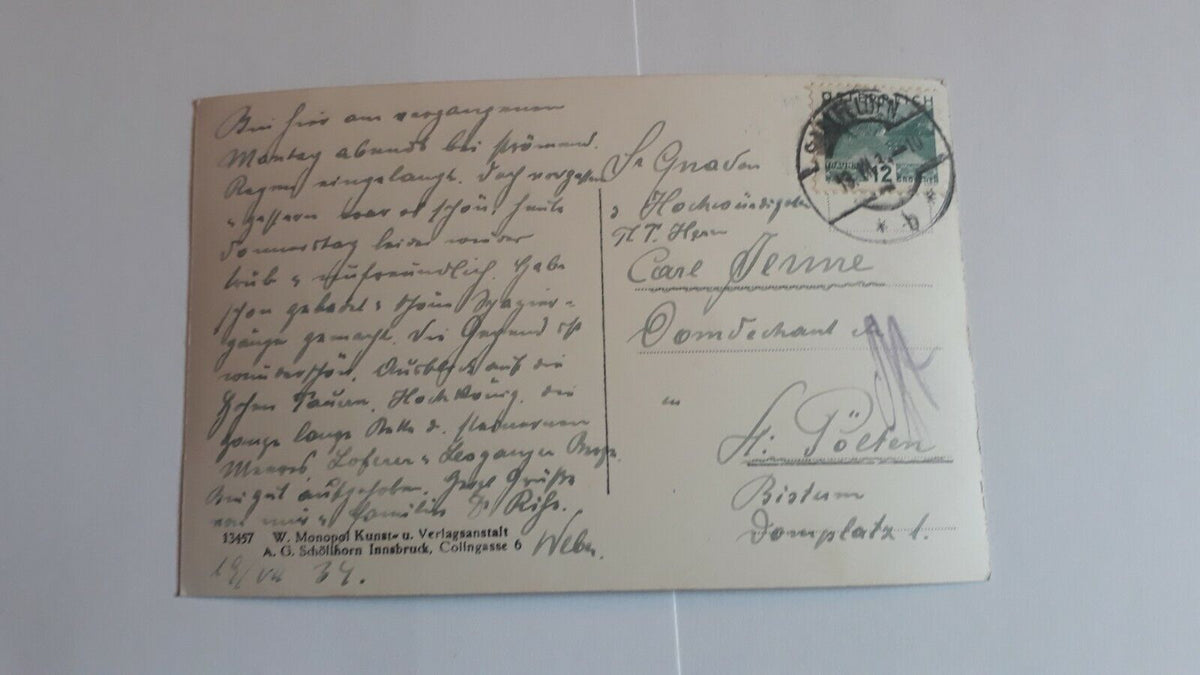 Bin hier am vergangenen
Montag abends bei strömend.
Regen eingelangt. Doch vorgestern
u gestern war es schön, heute
Donnerstag leider wieder
trüb u unfreundlich. Habe
schon gebadet u schöne Spazier-
gänge gemacht. Die Gegend ist
wunderschön. Ausblick auf die
Hohen Tauern, Hochkönig, die
ganze lange Kette d. steinernen
Meeres, Loferer u Leoganger Berge.
Bin gut aufgehoben. Grüße
von mir u Familie
Weber.
13457 W. Monopol Kunst- u. Verlagsanstalt
A. G. Schöllhorn Innsbruck, Colingasse 6
19/VII 34.
ÖSTERREICH
SAALFELDEN
12
* b *
Sr Gnaden
Hochwürdigsten
P. T. Herrn
Carl
Domdechant
in
St. Pölten
Bistum
Domplatz 1.